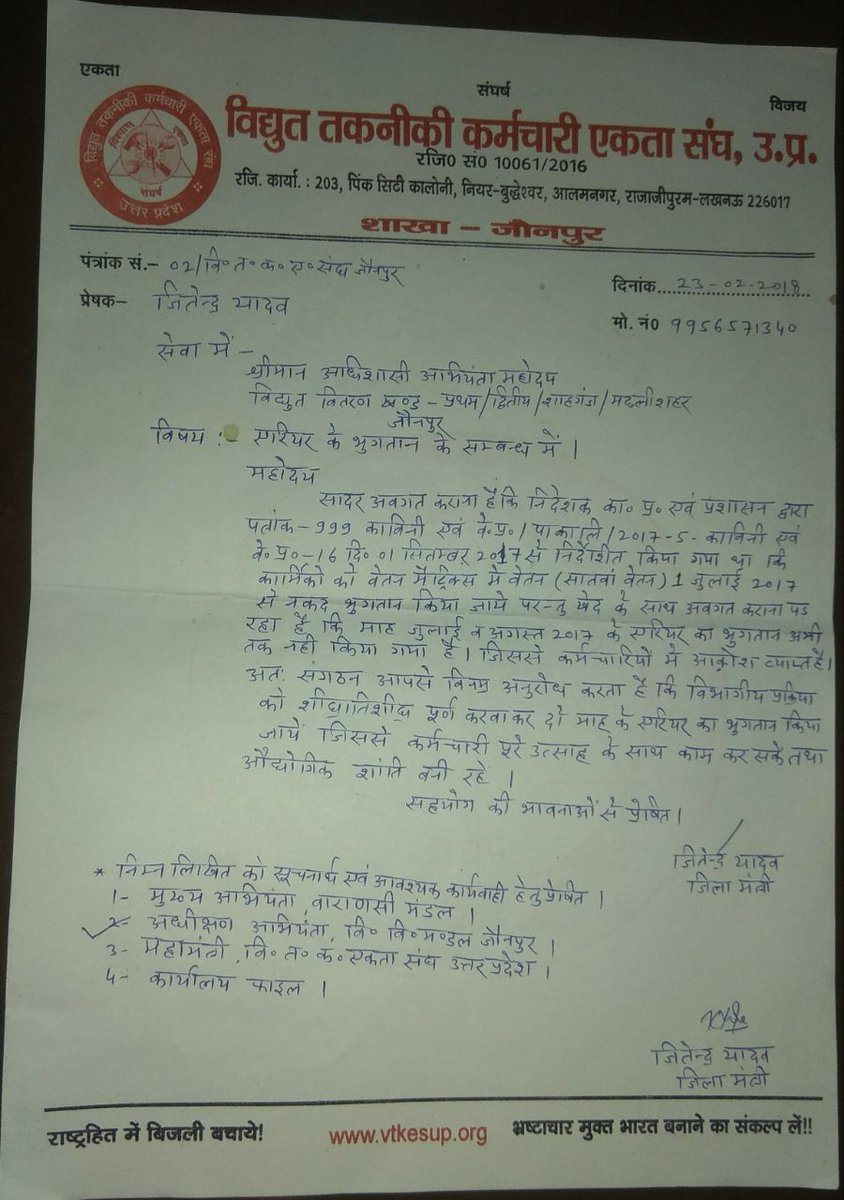 एकता
संघर्ष
विजय
विद्युत तकनीकी कर्मचारी एकता संघ
विश्वास
एकता
संघर्ष
उत्तर प्रदेश
विद्युत तकनीकी कर्मचारी एकता संघ, उ.प्र.
रजि0 सं0 10061/2016
रजि. कार्या. : 203, पिंक सिटी कालोनी, नियर-बुद्धेश्वर, आलमनगर, राजाजीपुरम-लखनऊ 226017
शाखा - जौनपुर
पंत्रांक सं.- 02/वि॰त॰क॰ए॰संघ जौनपुर
दिनांक..... 23-02-2018
प्रेषक- जितेन्द्र यादव
मो. नं0 9956571340
सेवा में -
श्रीमान अधिशासी अभियंता महोदय
विद्युत वितरण खण्ड - प्रथम/द्वितीय/शाहगंज/मछलीशहर
जौनपुर
विषय :- एरियर के भुगतान के सम्बन्ध में ।
महोदय
सादर अवगत कराना है कि निदेशक का॰ प्र॰ एवं प्रशासन द्वारा
पत्रांक-999 काविनी एवं वे॰प्र॰/पाकालि/2017-5-काविनी एवं
वे॰प्र॰-16 दि॰ 01 सितम्बर 2017 से निर्देशित किया गया था कि
कार्मिको को वेतन मैट्रिक्स में वेतन (सातवां वेतन) 1 जुलाई 2017
से नकद भुगतान किया जाये परन्तु खेद के साथ अवगत कराना पड़
रहा है कि माह जुलाई व अगस्त 2017 के एरियर का भुगतान अभी
तक नही किया गया है। जिससे कर्मचारियों में आक्रोश व्याप्त है।
अतः संगठन आपसे विनम्र अनुरोध करता है कि विभागीय प्रक्रिया
को शीघ्रातिशीघ्र पूर्ण करवा कर दो माह के एरियर का भुगतान किया
जायें जिससे कर्मचारी पूरे उत्साह के साथ काम कर सके तथा
औद्योगिक शांति बनी रहें ।
सहयोग की भावनाओं से प्रेषित ।
जितेन्द्र यादव
जिला मंत्री
* निम्न लिखित को सूचनार्थ एवं आवश्यक कार्यवाही हेतु प्रेषित ।
1- मुख्य अभियंता, वाराणसी मंडल ।
2- अधीक्षण अभियंता, वि॰ वि॰ मण्डल जौनपुर ।
3- महामंत्री, वि॰ त॰ क॰ एकता संघ उत्तर प्रदेश ।
4- कार्यालय फाइल ।
जितेन्द्र यादव
जिला मंत्री
राष्ट्रहित में बिजली बचाये!
www.vtkesup.org
भ्रष्टाचार मुक्त भारत बनाने का संकल्प लें!!